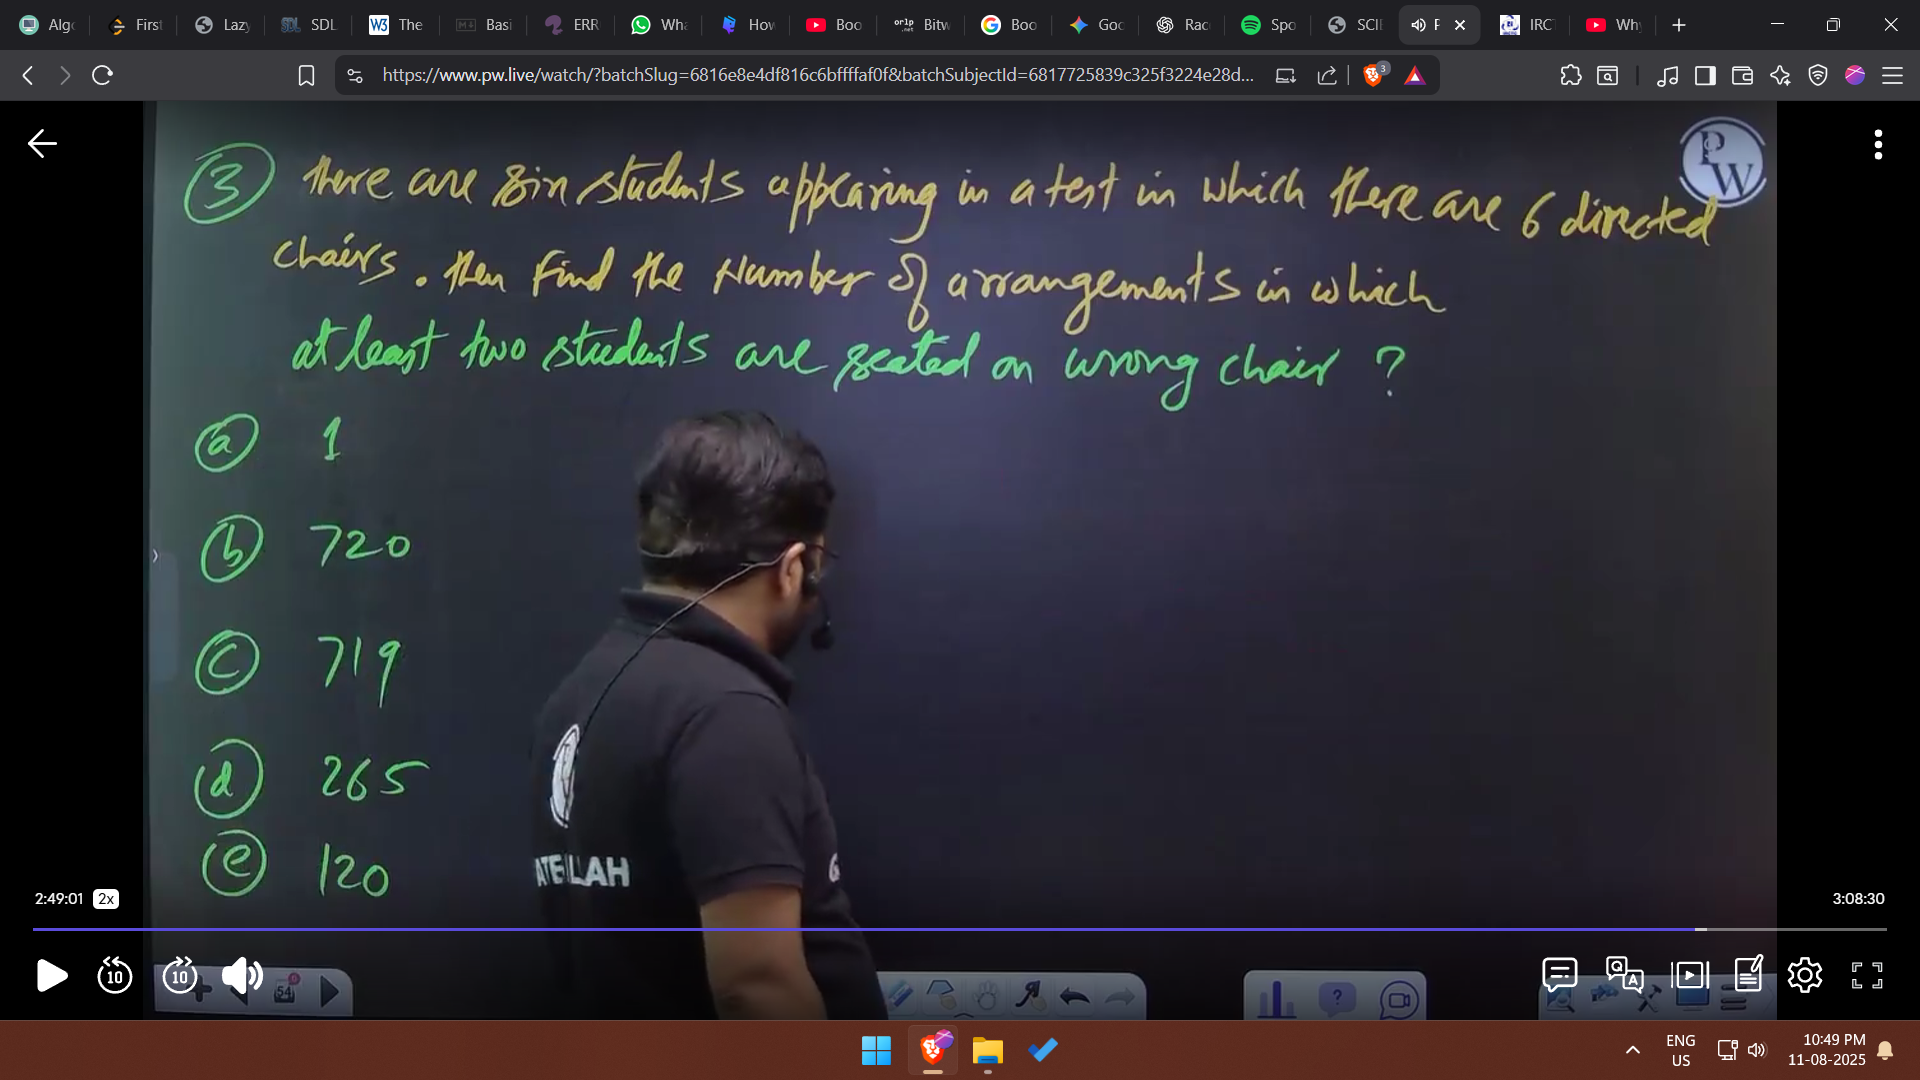 Algo
First
Lazy
SDL
The
Basi
ERR
Wha
How
Boo
Bitw
Boo
Goo
Rac
Spo
SCIE
P
IRCT
Why
https://www.pw.live/watch/?batchSlug=6816e8e4df816c6bffffaf0f&batchSubjectId=6817725839c325f3224e28d...
3
PW
③ there are six students appearing in a test in which there are 6 directed
chairs. then find the Number of arrangements in which
at least two students are seated on wrong chair ?
ⓐ 1
ⓑ 720
ⓒ 719
ⓓ 265
ⓔ 120
LAH
2:49:01 2x
3:08:30
10
10
54
6
ENG
US
10:49 PM
11-08-2025